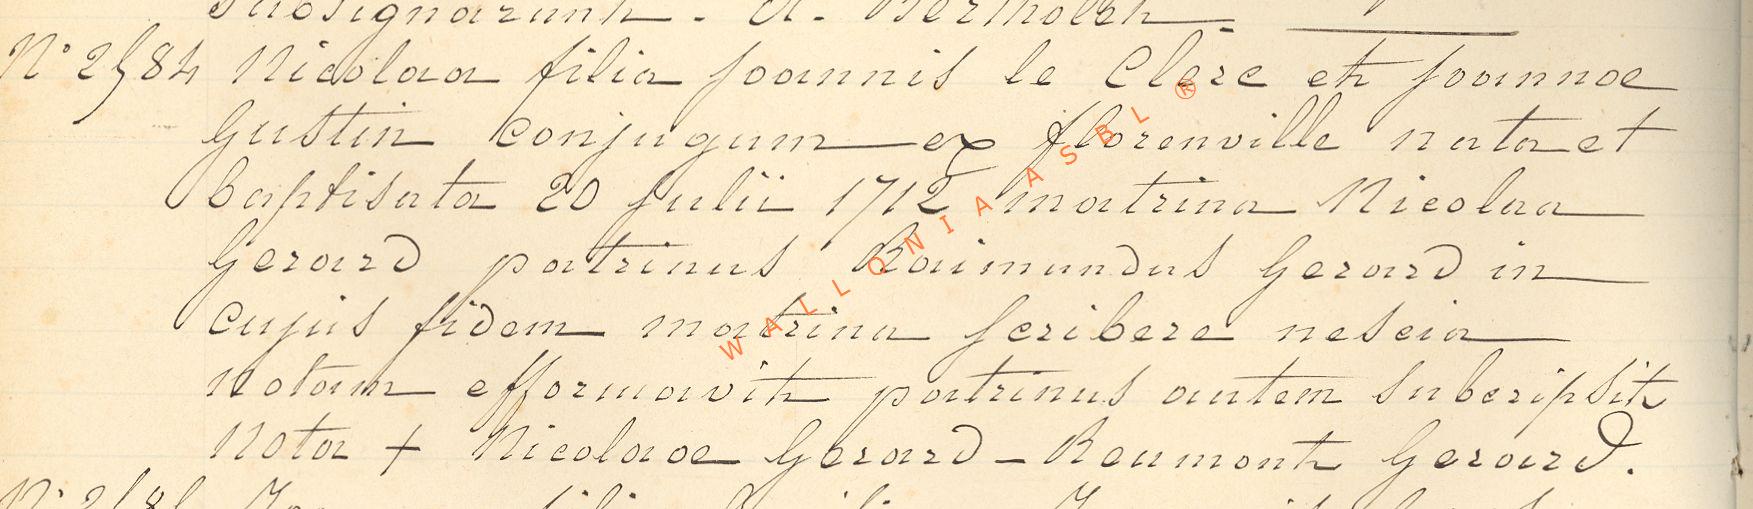 subsignarunt. A. Bertholet
N° 2584 Nicolaa filia Joannis le Clerc et Joannae
Gustin conjugum ex florenville nata et
baptisata 20 Julii 1712 matrina Nicolaa
Gerard patrinus Raimundus Gerard in
cujus fidem matrina scribere nescia
notam efformavit patrinus autem subcripsit
Nota + Nicolaae Gerard - Reumont Gerard.
WALLONIA ASBL ®